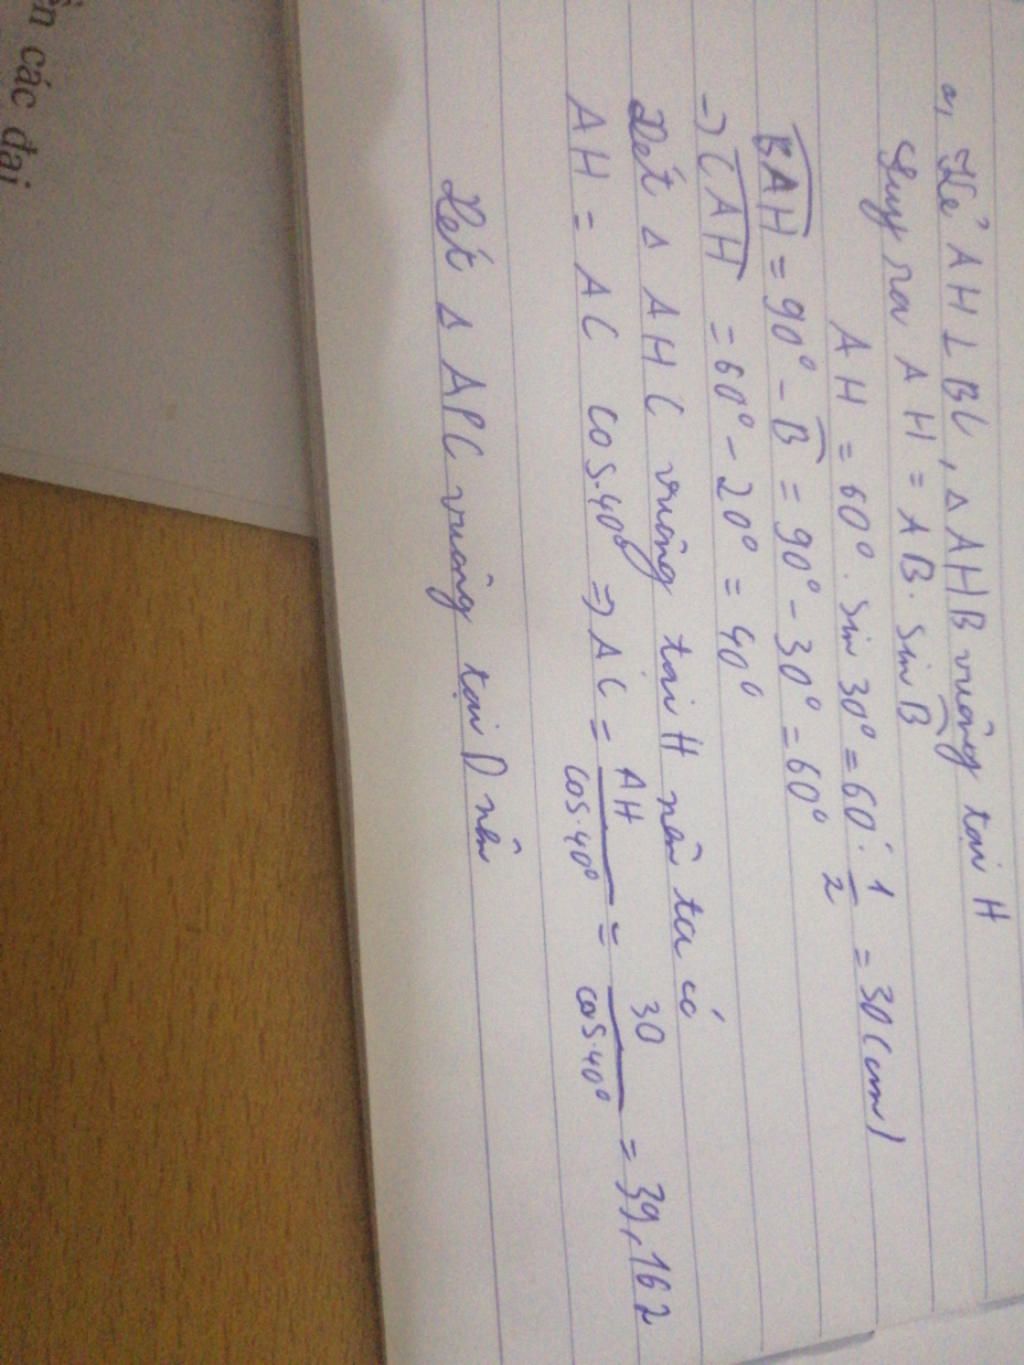 a, Kẻ AH ⊥ BC, Δ AHB vuông tại H
Suy ra AH = AB. sin B̂
AH = 60°. sin 30° = 60. 1/2 = 30 (cm)
B͡AH = 90° - B̂ = 90° - 30° = 60°
→ C͡AH = 60° - 20° = 40°
Xét Δ AHC vuông tại H nên ta có
AH = AC cos.40° ⇒ AC = AH/cos.40° = 30/cos.40° = 39,162
Xét Δ APC vuông tại D nên
ến các đại